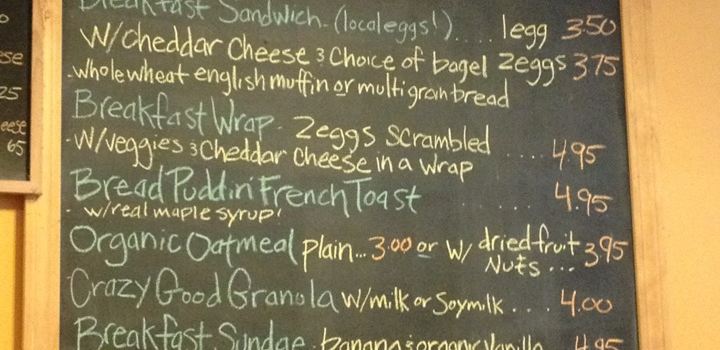 Breakfast Sandwich - (local eggs!) ..... 1egg 3.50
w/cheddar cheese & choice of bagel 2eggs 3.75
- whole wheat english muffin or multi grain bread
Breakfast Wrap - 2 eggs scrambled
- w/veggies & cheddar cheese in a wrap .... 4.95
Bread Puddin' French Toast ...... 4.95
- w/real maple syrup!
Organic Oatmeal plain... 3.00 or w/ dried fruit 3.95
Nuts ...
Crazy Good Granola w/milk or Soymilk ... 4.00
Breakfast Sundae - banana & organic Vanilla 4.95
ese
25
eese
65